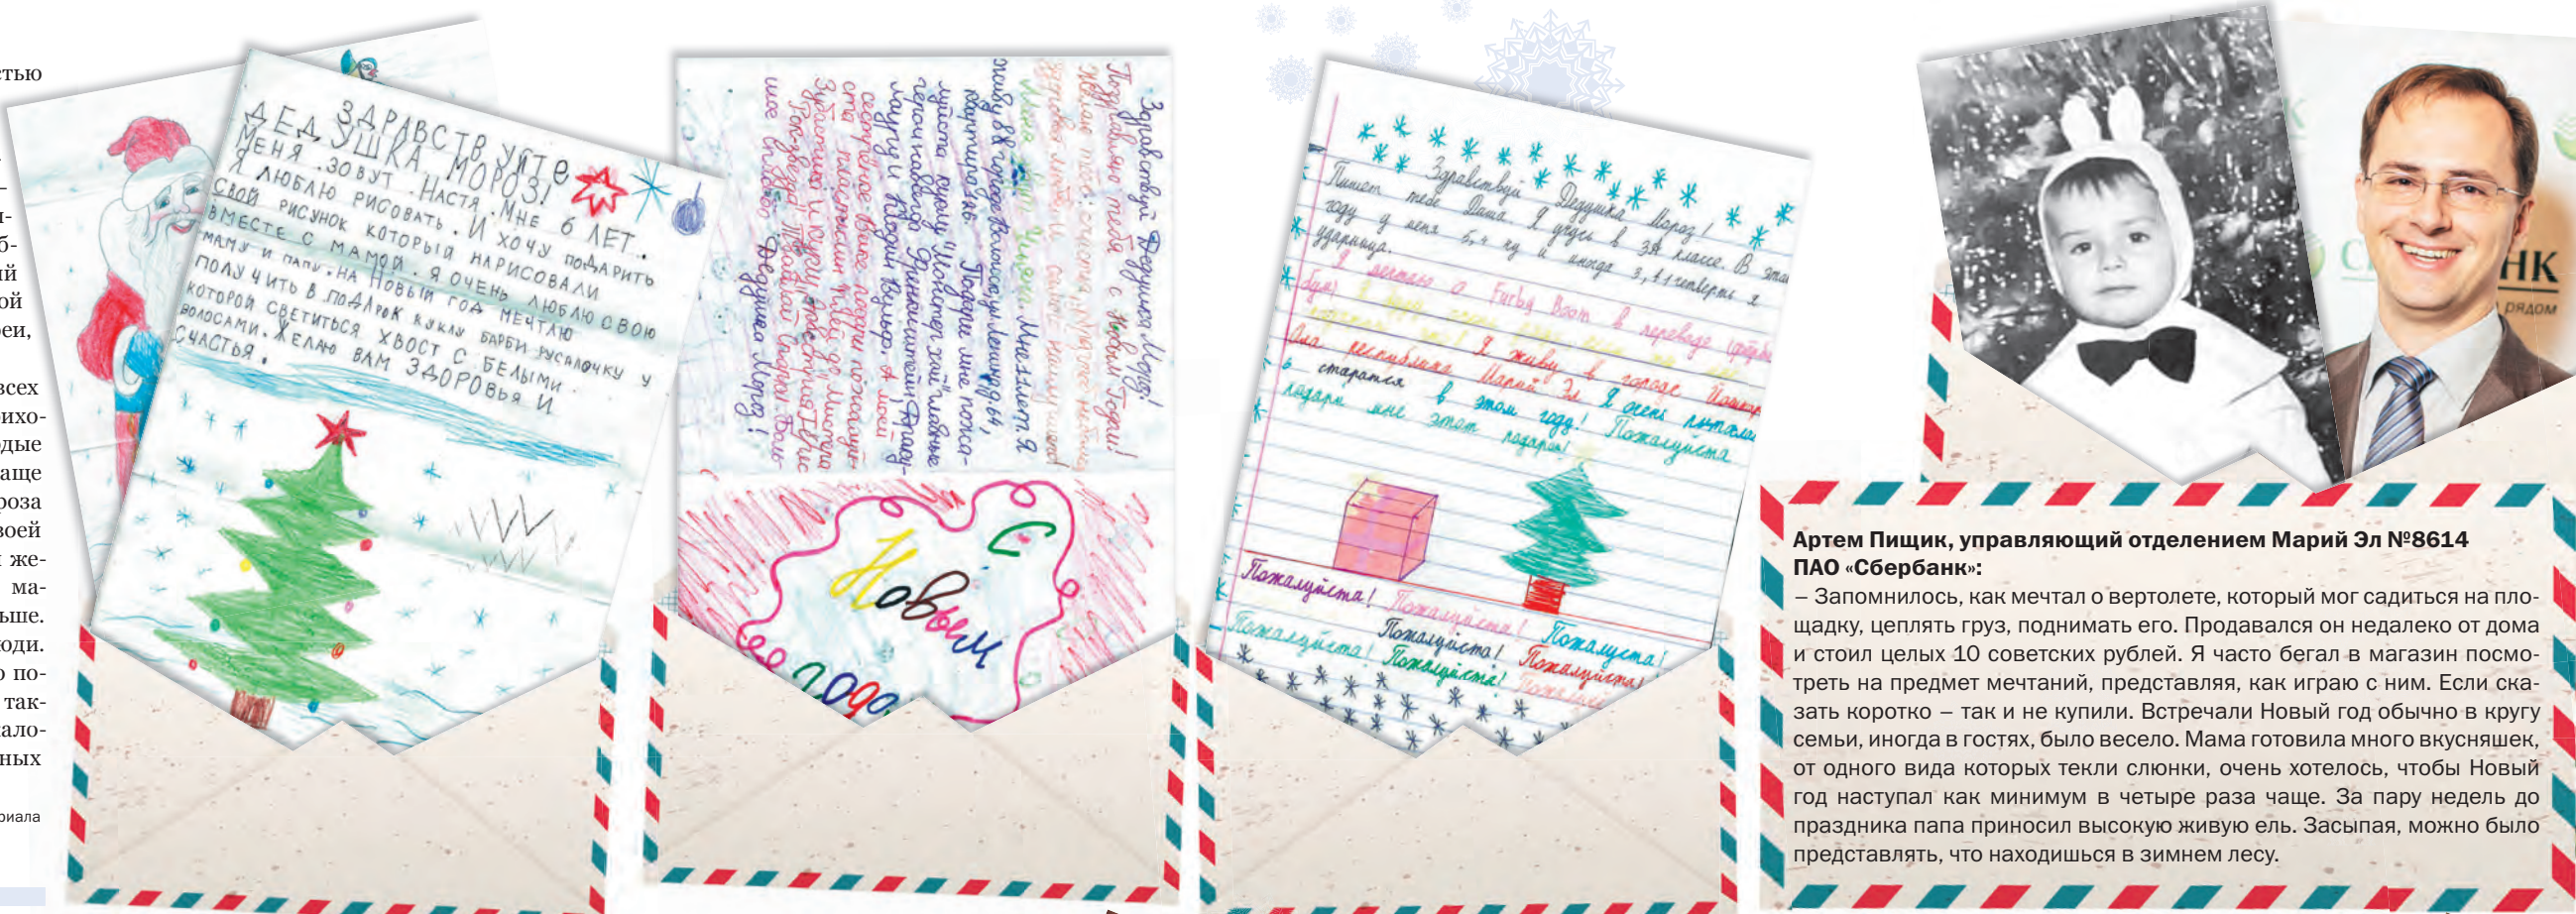 стью
й
ой
реи,
всех
рихо-
одые
аще
роза
воей
и же-
ма-
ьше.
юди.
о по-
так-
ало-
ных
риала
ЗДРАВСТВУЙТЕ
ДЕДУШКА МОРОЗ!
МЕНЯ .ЗОВУТ .НАСТЯ .МНЕ 6 ЛЕТ.
Я ЛЮБЛЮ РИСОВАТЬ. И ХОЧУ ПОДАРИТЬ
СВОЙ РИСУНОК КОТОРЫЙ НАРИСОВАЛИ
ВМЕСТЕ С МАМОЙ. Я ОЧЕНЬ ЛЮБЛЮ СВОЮ
МАМУ И ПАПУ. НА НОВЫЙ ГОД МЕЧТАЮ
ПОЛУЧИТЬ В ПОДАРОК КУКЛУ БАРБИ РУСАЛОЧКУ У
КОТОРОЙ СВЕТИТЬСЯ ХВОСТ С БЕЛЫМИ .
ВОЛОСАМИ. ЖЕЛАЮ ВАМ ЗДОРОВЬЯ И
СЧАСТЬЯ.
Здравствуй Дедушка Мороз!
Поздравляю тебя с Новым Годом!
Желаю тебе счастья,
Мне 11 лет Я
живу в
квартира Подари мне пожа-
луйста куклу "Монстер хай" главные
герои
сестрёнке Вике подари пожалуй-
ста пластилин Плей до Мистера
Зубастика и
Рок-звезда" Твой Боль-
шое спасибо Дедушка Мороз!
С
Новым
годом
Здравствуй Дедушка Мороз!
Пишет тебе Даша. Я учусь в 3А классе. В этом
году у меня 5, 4 ну и иногда 3, 1 четверти я
ударница.
Я мечтаю о Furby Boom в переводе
бум) Я буду очень рада если ты мне
Я живу в городе Йошкар
Ола республика Марий Эл. Я очень пыталась
в этом году! Пожалуйста
подари мне этот подарок!
Пожалуйста! Пожалуйста! Пожалуста!
Пожалуйста!
Пожалуйста! Пожалуйста! Пожалуйста!
НК
рядом
Артем Пищик, управляющий отделением Марий Эл №8614
ПАО «Сбербанк»:
– Запомнилось, как мечтал о вертолете, который мог садиться на пло-
щадку, цеплять груз, поднимать его. Продавался он недалеко от дома
и стоил целых 10 советских рублей. Я часто бегал в магазин посмо-
треть на предмет мечтаний, представляя, как играю с ним. Если ска-
зать коротко – так и не купили. Встречали Новый год обычно в кругу
семьи, иногда в гостях, было весело. Мама готовила много вкусняшек,
от одного вида которых текли слюнки, очень хотелось, чтобы Новый
год наступал как минимум в четыре раза чаще. За пару недель до
праздника папа приносил высокую живую ель. Засыпая, можно было
представлять, что находишься в зимнем лесу.